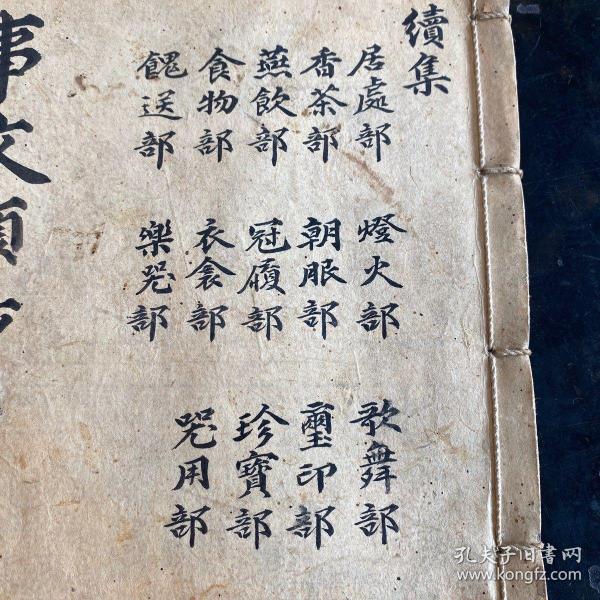 續集
居處部
香茶部
燕飲部
食物部
餽送部
燈火部
朝服部
冠履部
衣衾部
樂器部
歌舞部
璽印部
珍寶部
器用部
事文類
孔夫子旧書网
www.kongfz.com